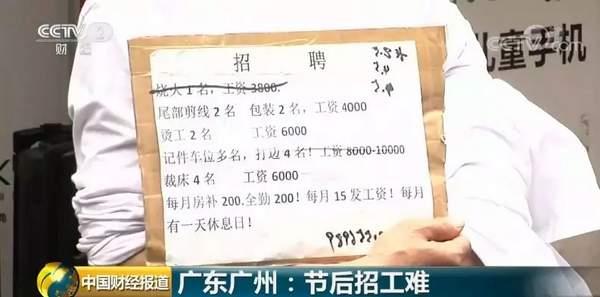 CCTV 2
财经
CCTV.com
儿童手机
招聘
烧火1名，工资3800.
尾部剪线2名 包装2名，工资4000
烫工2名 工资6000
记件车位多名，打边4名！工资8000-10000
裁床4名 工资6000
每月房补200.全勤200！每月15发工资！每月
有一天休息日！
中国财经报道
广东广州：节后招工难